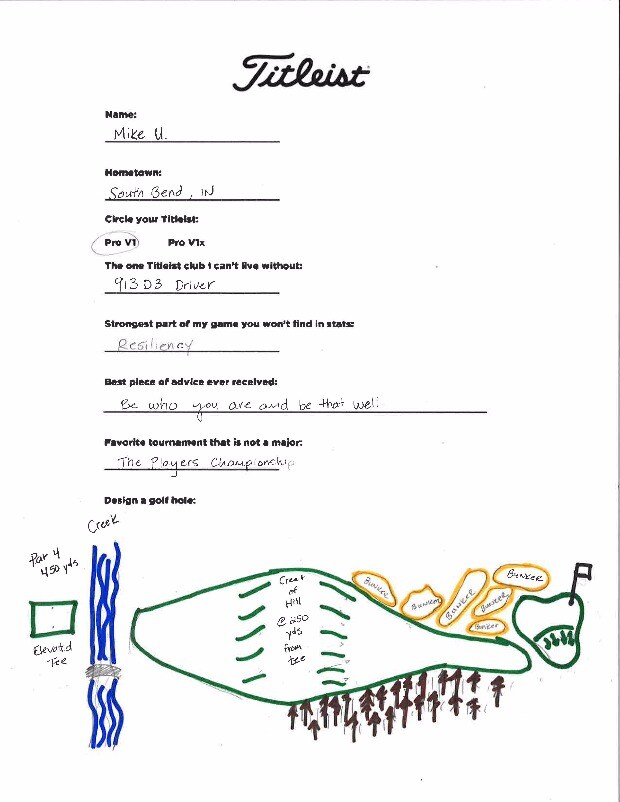 Titleist
Name:
Mike U.
Hometown:
South Bend, IN
Circle your Titleist:
Pro V1 Pro V1x
The one Titleist club I can't live without:
913 D3 Driver
Strongest part of my game you won't find in stats:
Resiliency
Best piece of advice ever received:
Be who you are and be that well
Favorite tournament that is not a major:
The Players Championship
Design a golf hole:
Creek
Par 4
450 yds
Elevated
Tee
Crest
of
Hill
@ 250
yds
from
tee
Bunker
Bunker
BUNKER
Bunker
Bunker
BUNKER